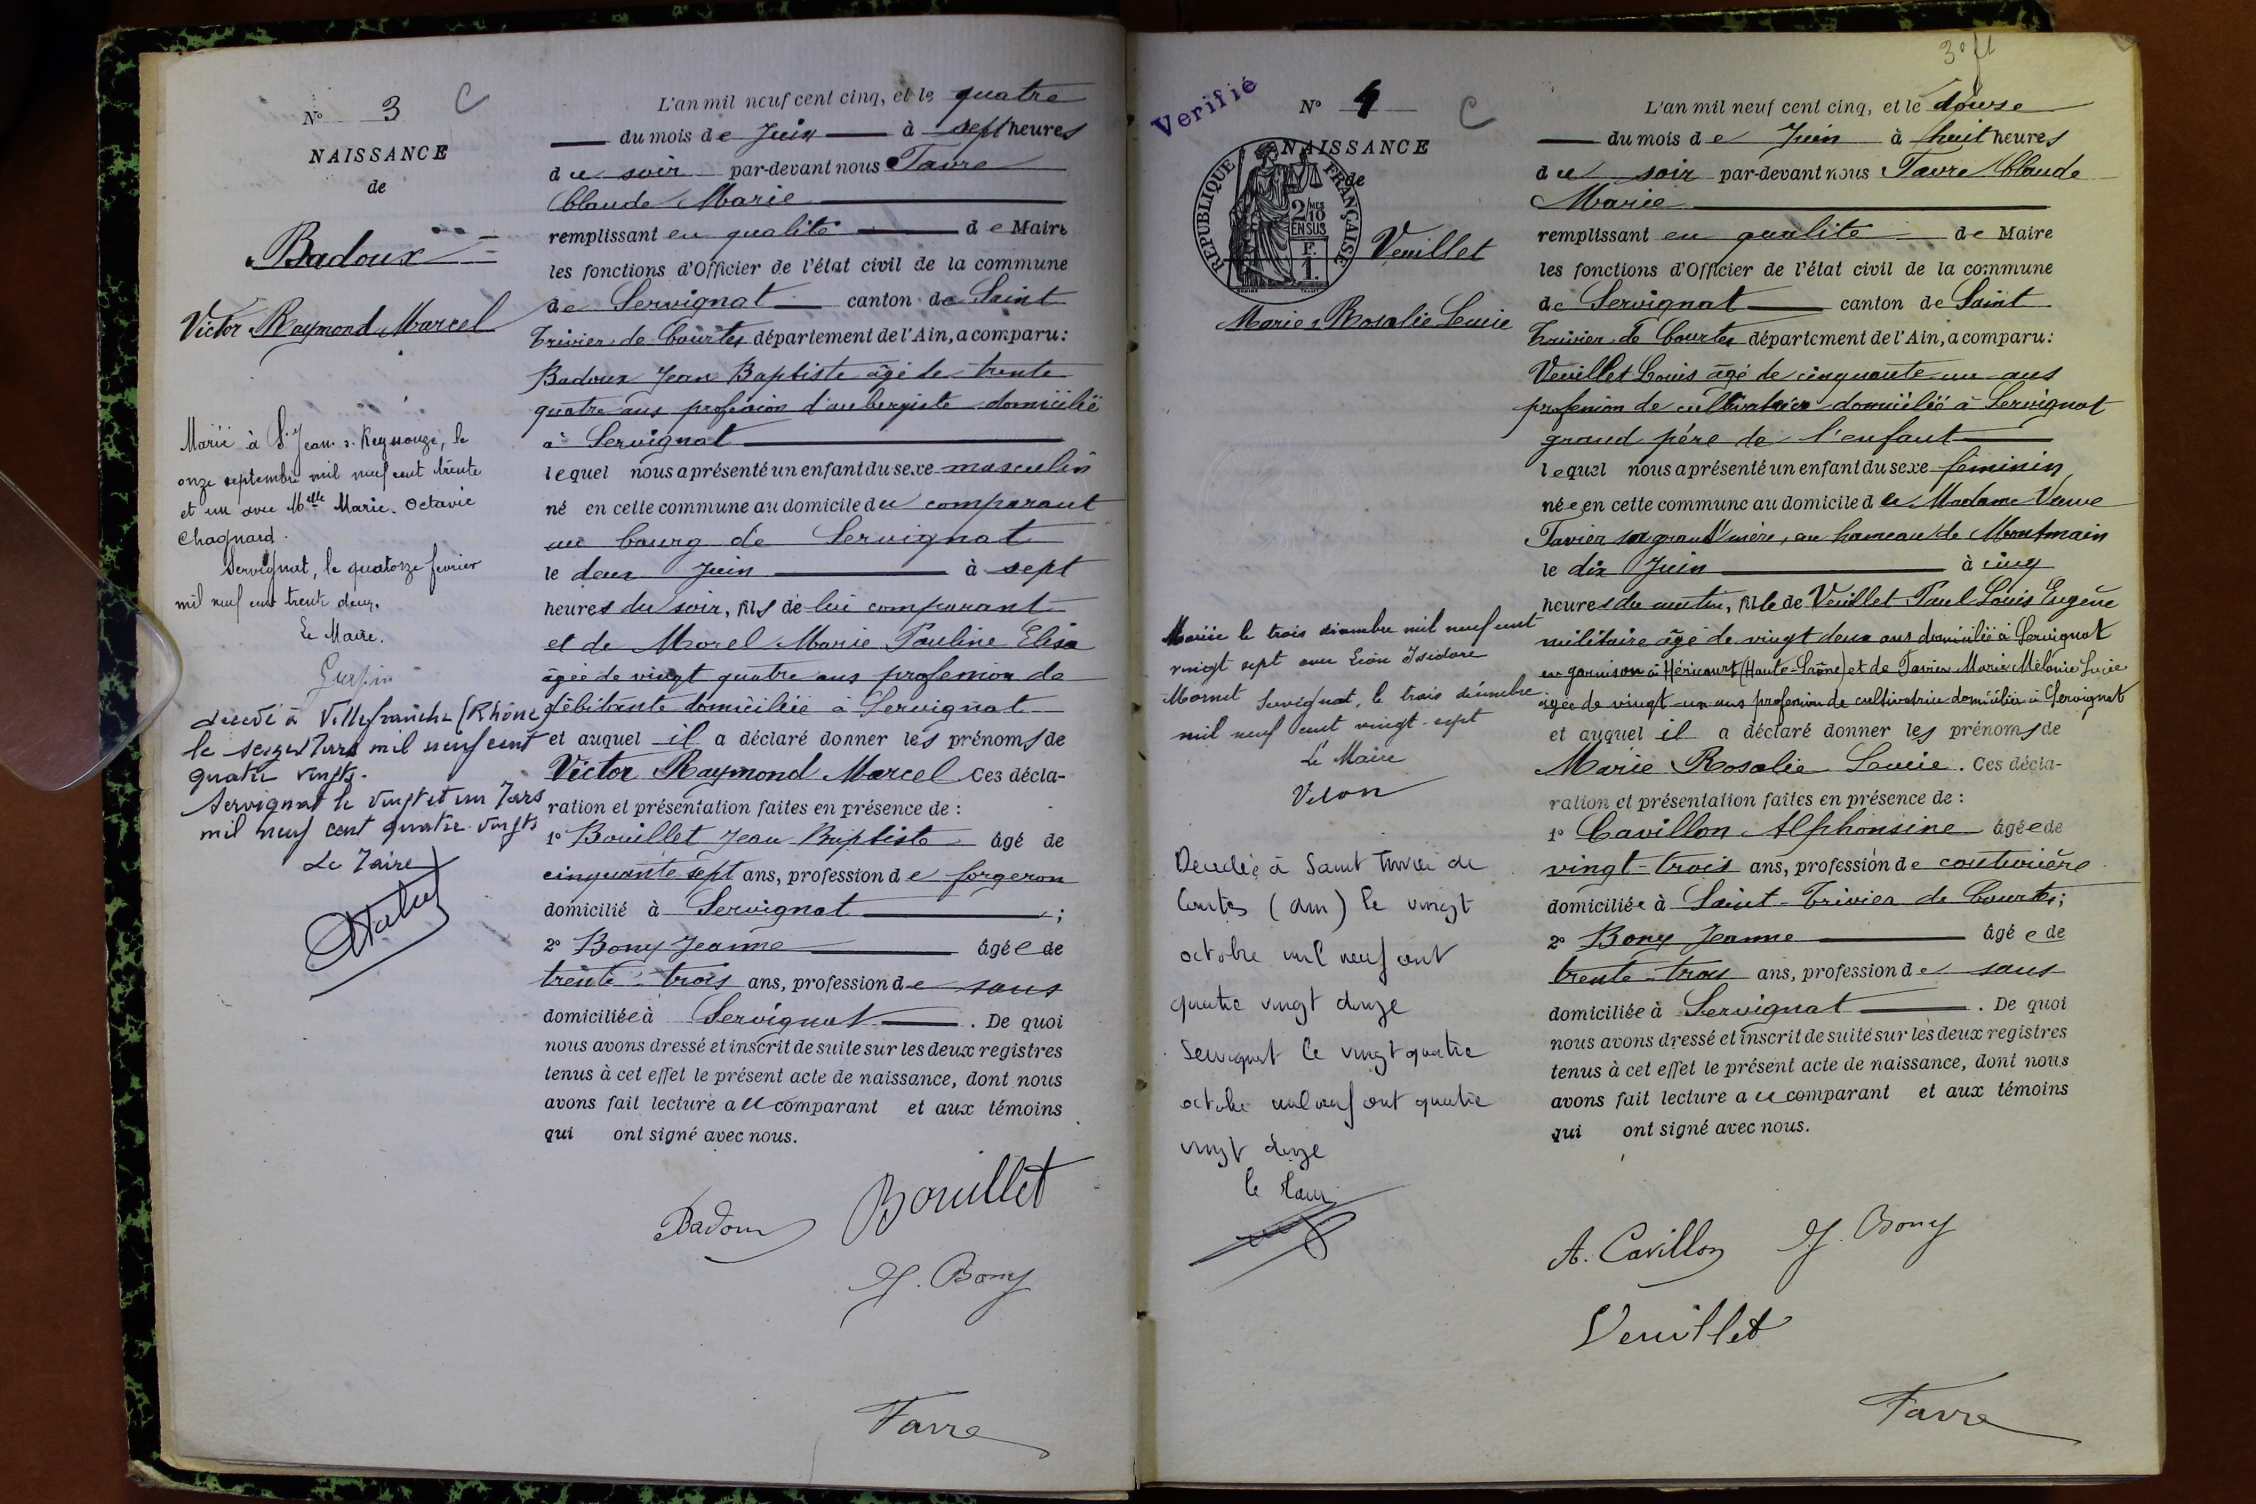 N° 3 C
NAISSANCE
de
Badoux
Victor Raymond Marcel
Marié à St Jean s. Reyssouze, le
onze septembre mil neuf cent trente
et un avec Melle Marie. Octavie
Chagnard.
Servignat, le quatorze février
mil neuf cent trente deux.
Le Maire.
décédé à Villefranche (Rhône)
le seize Mars mil neuf cent
quatre vingts.
Servignat le vingt et un Mars
mil neuf cent quatre-vingts
Le Maire
L'an mil neuf cent cinq, et le quatre
du mois de Juin à sept heures
du soir par-devant nous Favre
Claude Marie
remplissant en qualité de Maire
les fonctions d'Officier de l'état civil de la commune
de Servignat canton de Saint
Trivier de Courtes département de l'Ain, a comparu:
Badoux Jean Baptiste âgé de trente
quatre ans profession d'aubergiste domicilié
à Servignat
lequel nous a présenté un enfant du sexe masculin
né en cette commune au domicile du comparant
au bourg de Servignat
le deux Juin à sept
heures du soir, fils de lui comparant
et de Morel Marie Pauline Elisa
âgée de vingt quatre ans profession de
débitante domiciliée à Servignat
et auquel il a déclaré donner les prénoms de
Victor Raymond Marcel Ces décla-
ration et présentation faites en présence de :
1° Bouillet Jean Baptiste âgé de
cinquante sept ans, profession de forgeron
domicilié à Servignat ;
2° Bony Jeanne âgée de
trente-trois ans, profession de sans
domiciliée à Servignat . De quoi
nous avons dressé et inscrit de suite sur les deux registres
tenus à cet effet le présent acte de naissance, dont nous
avons fait lecture au comparant et aux témoins
qui ont signé avec nous.
Badoux
Bouillet
J. Bony
Favre
Verifié
N° 4 C
NAISSANCE
de
REPUBLIQUE FRANÇAISE
2/10 MES
EN SUS
F.
1.
Veuillet
Marie Rosalie Lucie
Mariée le trois décembre mil neuf cent
vingt sept avec Léon Isidore
Mornet Servignat, le trois décembre
mil neuf cent vingt-sept
Le Maire
Décédée à Saint Trivier de
Courtes (Ain) le vingt
octobre mil neuf cent
quatre vingt douze
Servignat le vingt quatre
octobre mil neuf cent quatre
vingt douze
le Maire
L'an mil neuf cent cinq, et le douze
du mois de Juin à huit heures
du soir par-devant nous Favre Claude
Marie
remplissant en qualité de Maire
les fonctions d'Officier de l'état civil de la commune
de Servignat canton de Saint
Trivier de Courtes département de l'Ain, a comparu:
Veuillet Louis âgé de cinquante un ans
profession de cultivateur domicilié à Servignat
grand père de l'enfant
lequel nous a présenté un enfant du sexe féminin
née en cette commune au domicile de Madame Veuve
Tavier sa grand'mère, au hameau de Montmain
le dix Juin à cinq
heures du matin, fille de Veuillet Paul Louis Eugène
militaire âgé de vingt deux ans domicilié à Servignat
en garnison à Héricourt (Haute-Saône) et de Tavier Marie Mélanie Lucie
âgée de vingt-un ans profession de cultivatrice domiciliée à Servignat
et auquel il a déclaré donner les prénoms de
Marie Rosalie Lucie. Ces décla-
ration et présentation faites en présence de :
1° Cavillon Alphonsine âgée de
vingt-trois ans, profession de couturière
domiciliée à Saint-Trivier de Courtes;
2° Bony Jeanne âgée de
trente-trois ans, profession de sans
domiciliée à Servignat . De quoi
nous avons dressé et inscrit de suite sur les deux registres
tenus à cet effet le présent acte de naissance, dont nous
avons fait lecture au comparant et aux témoins
qui ont signé avec nous.
A. Cavillon
J. Bony
Veuillet
Favre